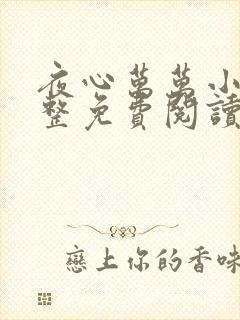 夜心萬萬小
整免費閱讀
戀上你的香味